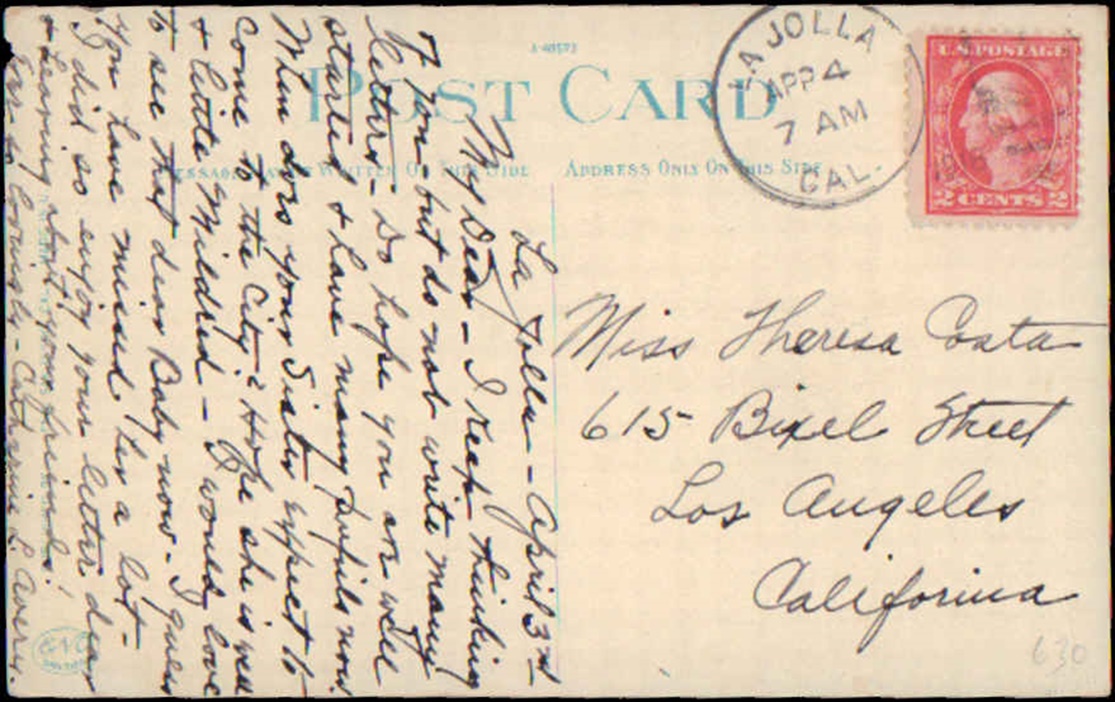 A-48573
POST CARD
MESSAGE MAY BE WRITTEN ON THIS SIDE
ADDRESS ONLY ON THIS SIDE
LA JOLLA
APR 4
7 AM
CAL.
U.S. POSTAGE
2 CENTS 2
La Jolla - April 3rd
My Dear - I keep thinking
of you but do not write many
letters - Do hope you are well
started & have many pupils now.
When does your Sister expect to
come to the City? Hope she is well
& little Mildred - I would love
to see that dear Baby now. I guess
you have missed her a lot -
I did so enjoy your letter dear
& hearing about your friends!
Ever so lovingly - Catharine L. Avery.
Miss Theresa Costa
615 Bixel Street
Los Angeles
California
630